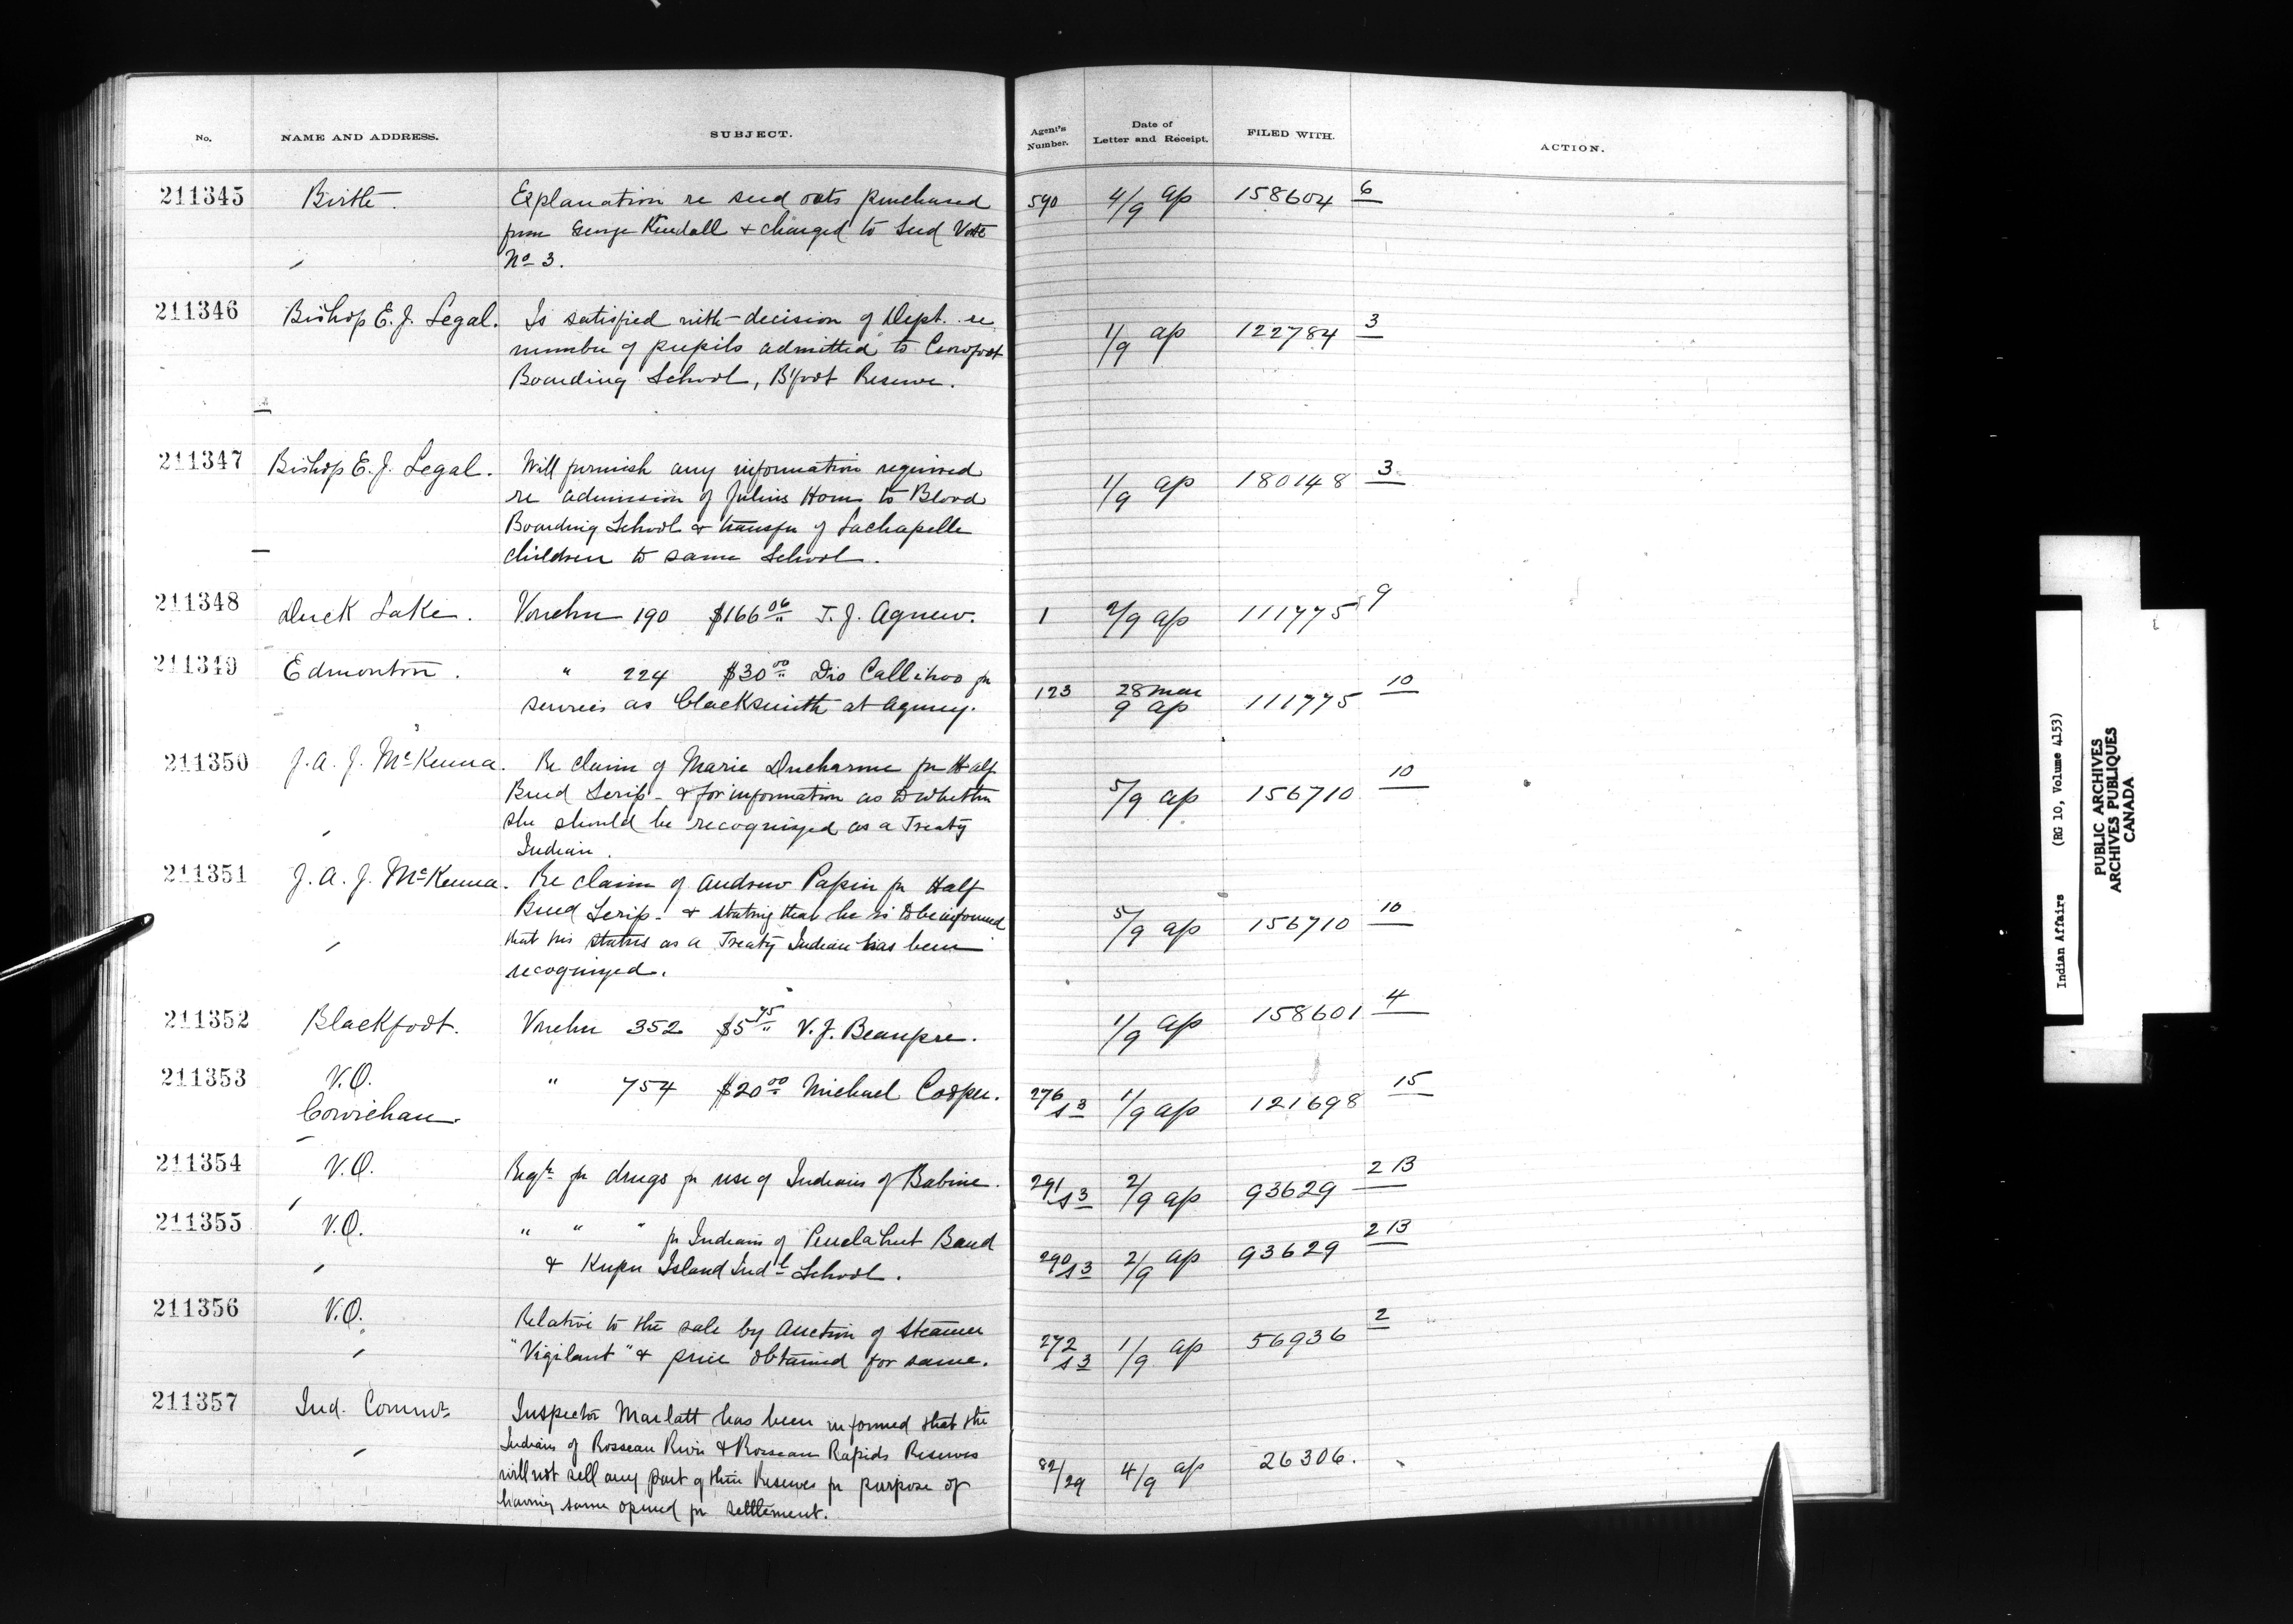 No. NAME AND ADDRESS. SUBJECT. Agent's Number. Date of Letter and Receipt. FILED WITH. ACTION.
211345 Birtle. Explanation re seed oats purchased 590 4/9 ap 158604 6
from George Kendall & charged to Seed Vote
No 3.
211346 Bishop E. J. Legal. Is satisfied with decision of Dept. re 1/9 ap 122784 3
number of pupils admitted to Crowfoot
Boarding School, B'foot Reserve.
211347 Bishop E. J. Legal. Will furnish any information required 1/9 ap 180148 3
re admission of Julius Horn to Blood
Boarding School & transfer of Lachapelle
children to same School.
211348 Duck Lake. Voucher 190 $166.06 T. J. Agnew. 1 2/9 ap 111775 9
211349 Edmonton. " 224 $30.00 Dio Callihoo for 123 28 Mar 9 ap 111775 10
services as blacksmith at agency.
211350 J. A. J. McKenna. Re claim of Marie Ducharme for Half 5/9 ap 156710 10
Breed Scrip - & for information as to whether
she should be recognized as a Treaty
Indian.
211351 J. A. J. McKenna. Re claim of Andrew Papin for Half 5/9 ap 156710 10
Breed Scrip - & stating that he is to be informed
that his status as a Treaty Indian has been
recognized.
211352 Blackfoot. Voucher 352 $5.75 V. J. Beaupre. 1/9 ap 158601 4
211353 V.O. " 754 $20.00 Michael Cooper. 276/s3 1/9 ap 121698 15
Cowichan.
211354 V.O. Reqn for drugs for use of Indians of Babine. 291/s3 2/9 ap 93629 2 B
211355 V.O. " " " for Indians of Penelahut Band 290/s3 2/9 ap 93629 2 B
& Kuper Island Indl School.
211356 V.O. Relative to the sale by Auction of Steamer 272/s3 1/9 ap 56936 2
"Vigilant" & price obtained for same.
211357 Ind. Commr. Inspector Marlatt has been informed that the
Indians of Rosseau River & Rosseau Rapids Reserves 82/29 4/9 ap 26306.
will not sell any part of their Reserves for purpose of
having same opened for settlement.
Indian Affairs (RG 10, Volume 4153)
PUBLIC ARCHIVES
ARCHIVES PUBLIQUES
CANADA